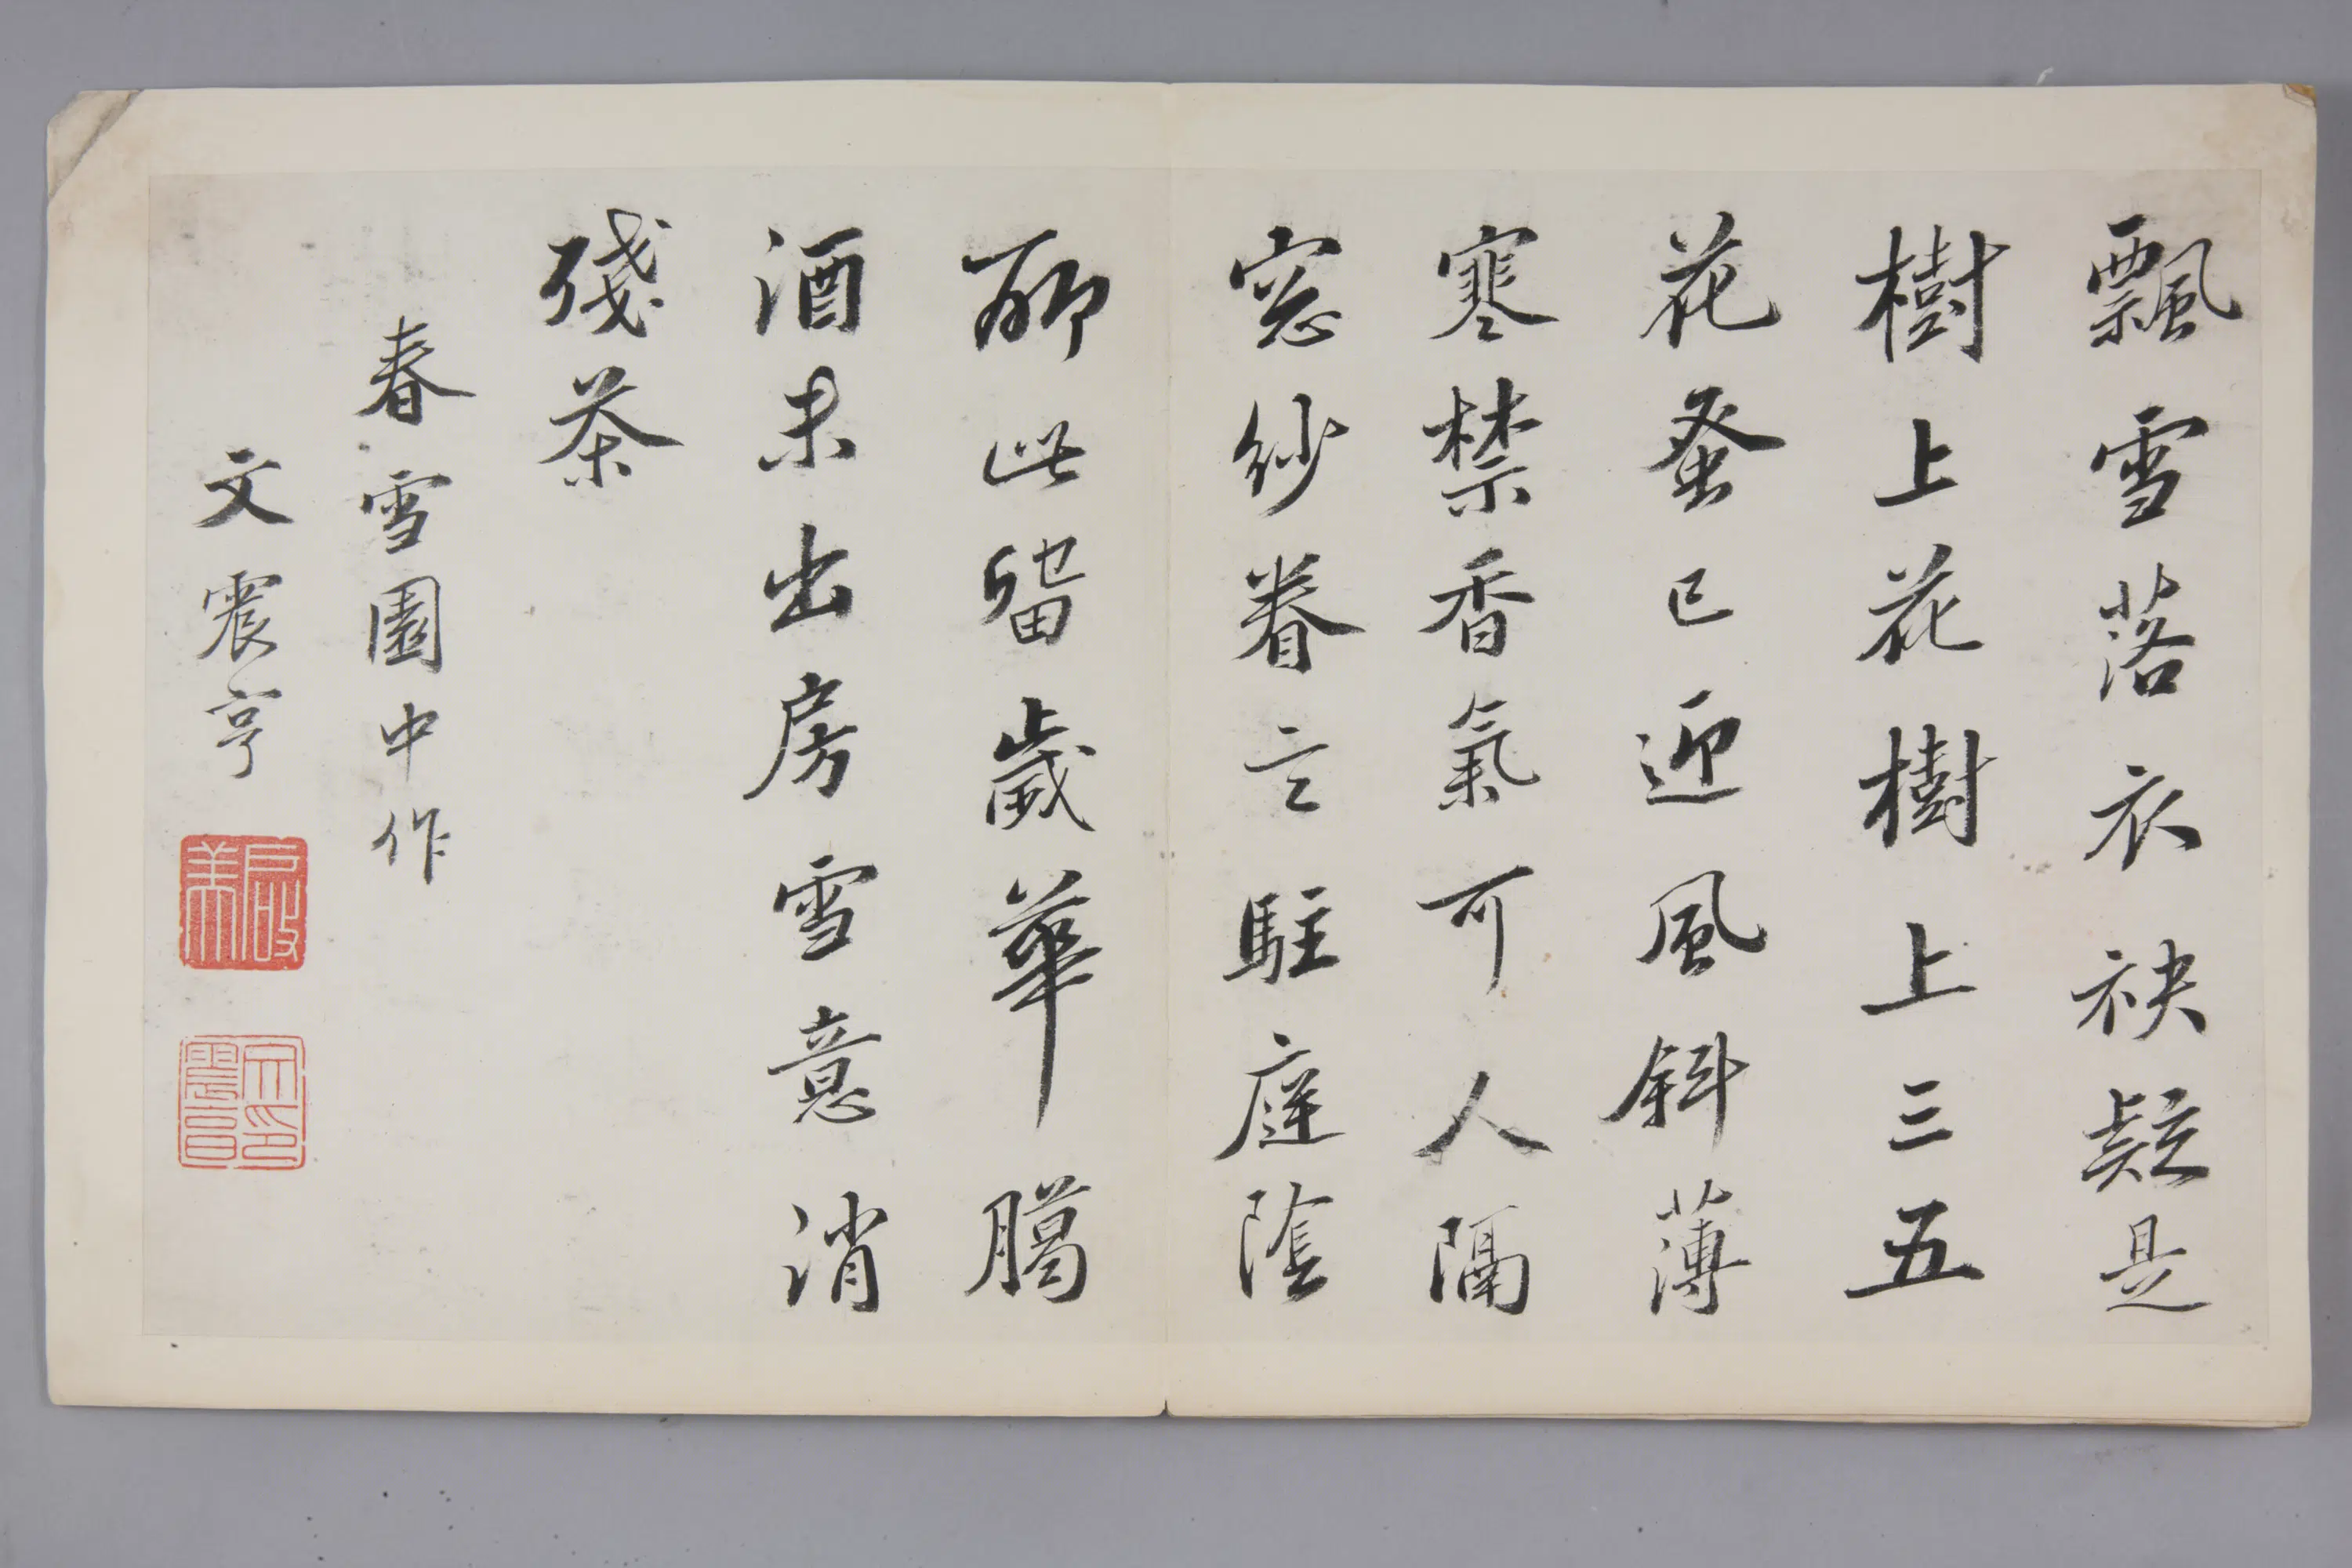 飄雪落衣袂疑是
樹上花樹上三五
花蚤已迎風斜薄
寒禁香氣可人隔
窓紗眷言駐庭陰
聊此留歲華臈
酒未出房雪意消
殘茶
春雪園中作
文震亨
啟美
文印震亨